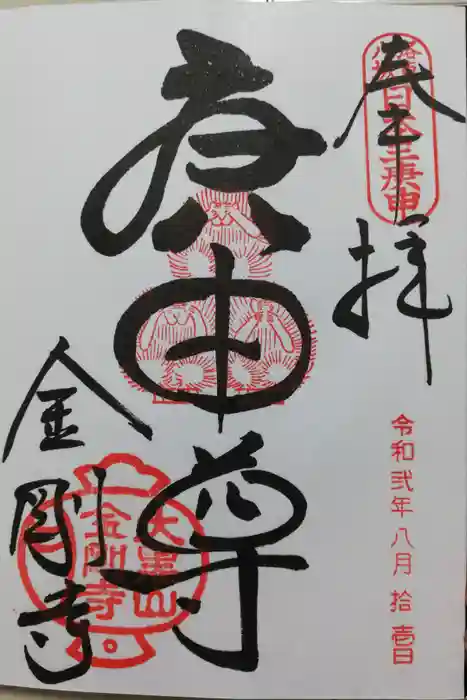 奉拝
洛東
八坂
日本三庚申
令和弐年八月拾壱日
庚申尊
金剛寺
大黒山
金剛寺